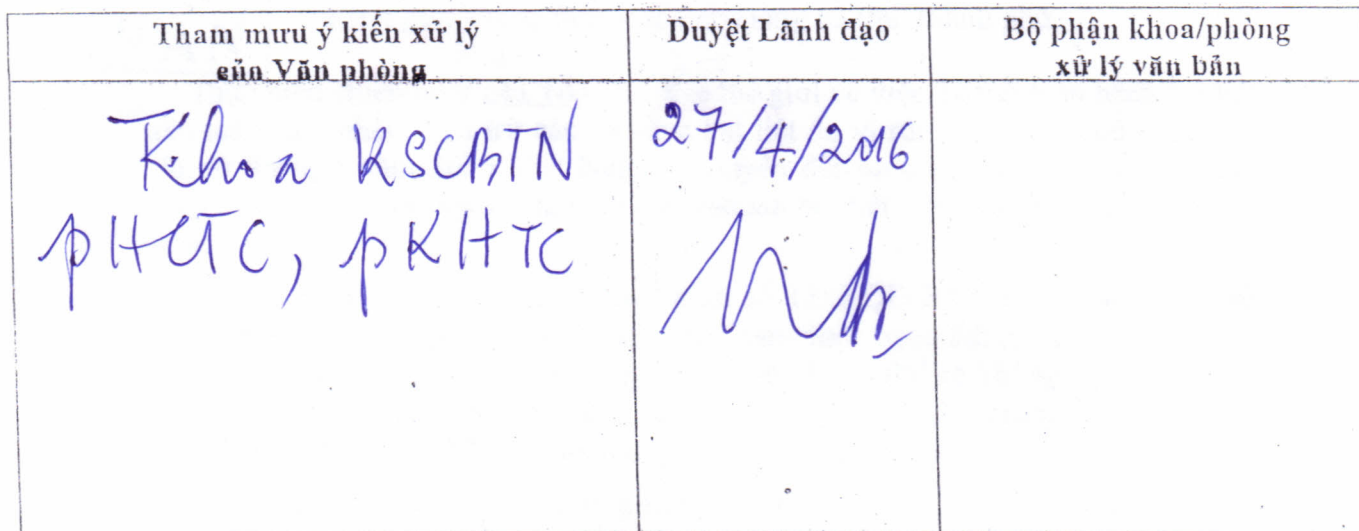 Tham mưu ý kiến xử lý
của Văn phòng
Duyệt Lãnh đạo
Bộ phận khoa/phòng
xử lý văn bản
Khoa KSCBTN
pHCTC, pKHTC
27/4/2016